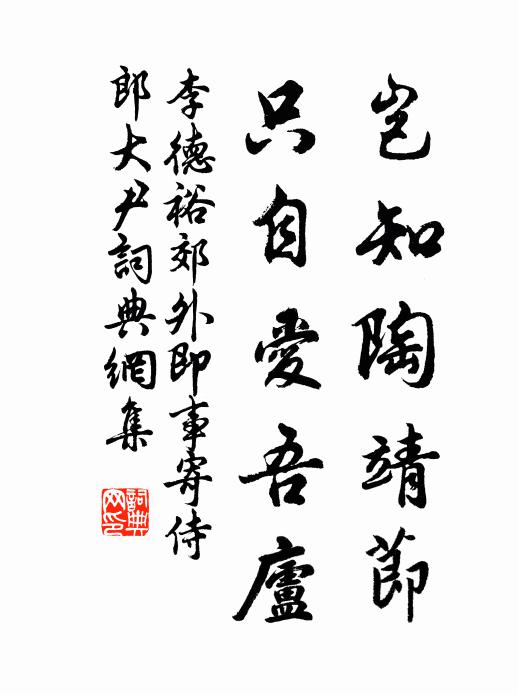 岂知陶靖節
只自愛吾廬
李德裕郊外即事寄侍
郎大尹詞典網集
詞典
网印